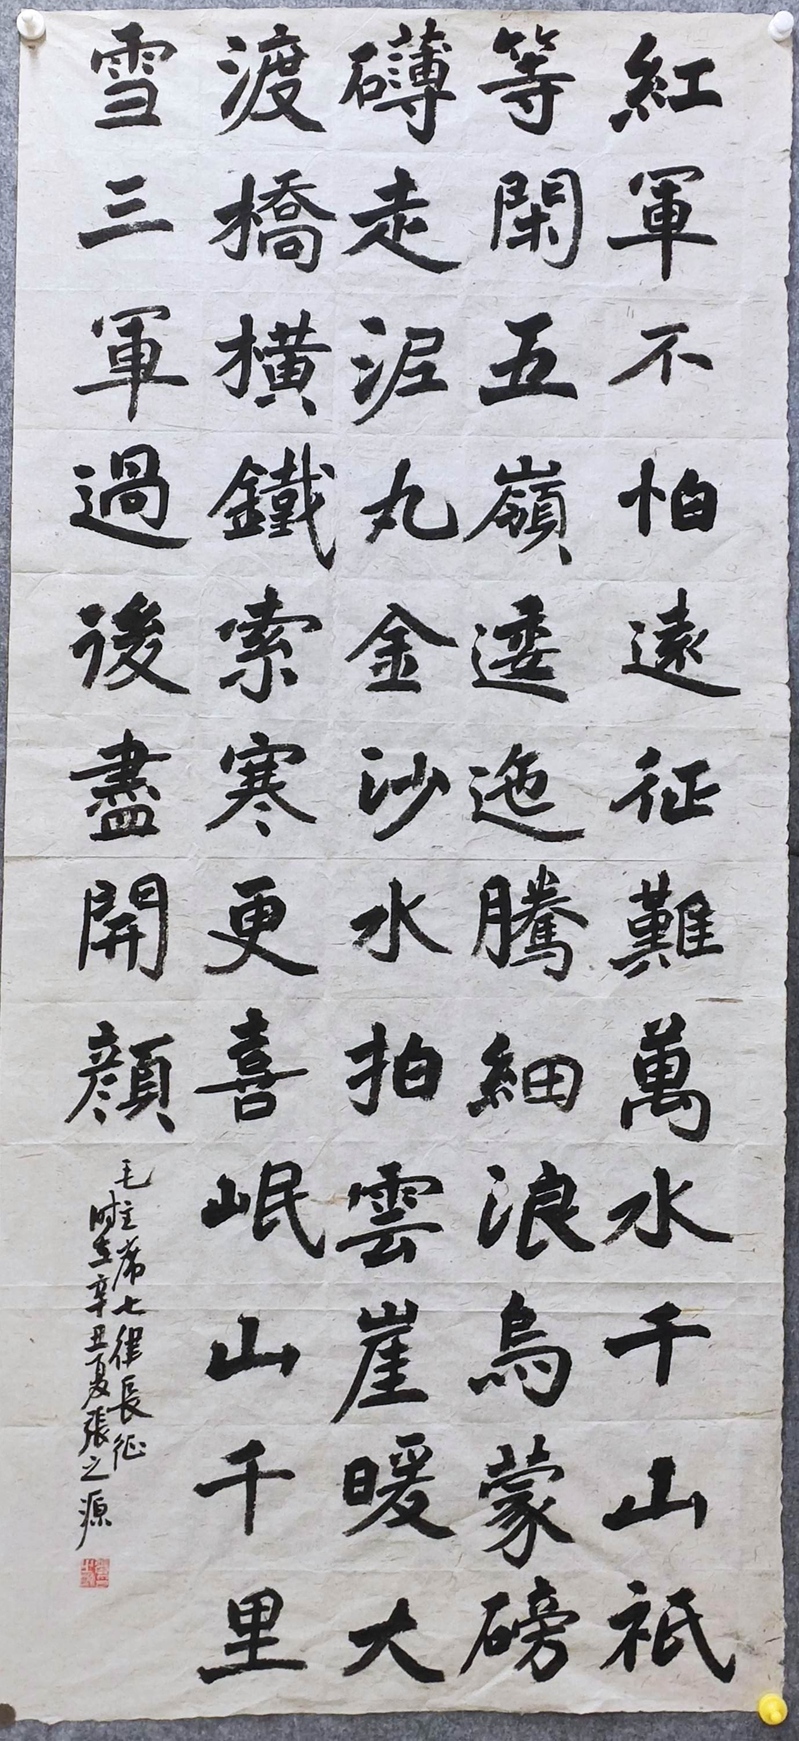 紅軍不怕遠征難萬水千山祇
等閑五嶺逶迤騰細浪烏蒙磅
礴走泥丸金沙水拍雲崖暖大
渡橋橫鐵索寒更喜岷山千里
雪三軍過後盡開顏
毛主席七律長征
時在辛丑夏張之源